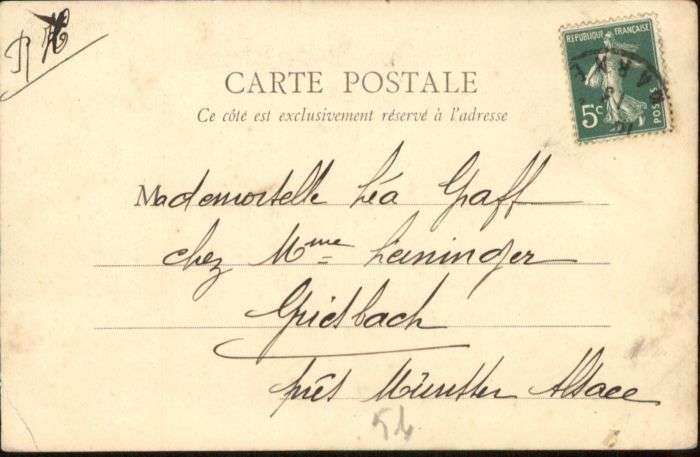 RÉPUBLIQUE FRANÇAISE
5c
POSTES
CARTE POSTALE
Ce côté est exclusivement réservé à l'adresse
Mademoiselle Léa Graff
chez Mme Leininger
Griesbach
près Münster Alsace
54